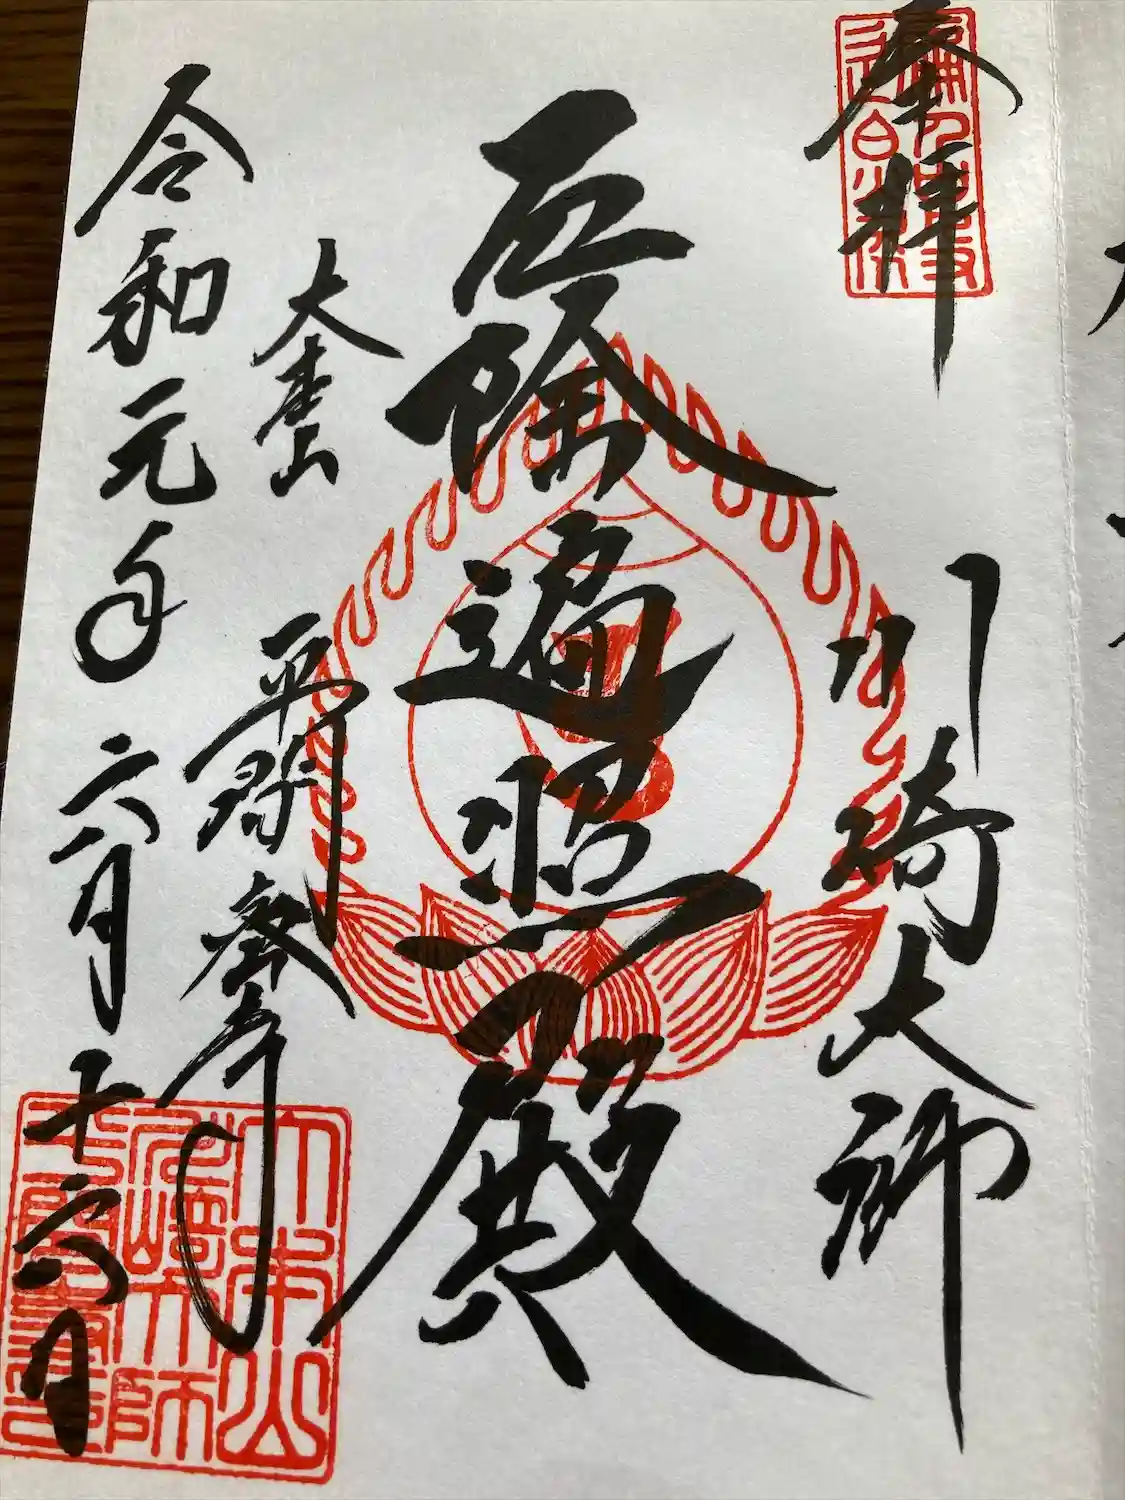 奉拝
川崎大師
厄除遍照殿
大本山
平間寺
令和元年六月十六日
大本山
川崎大師